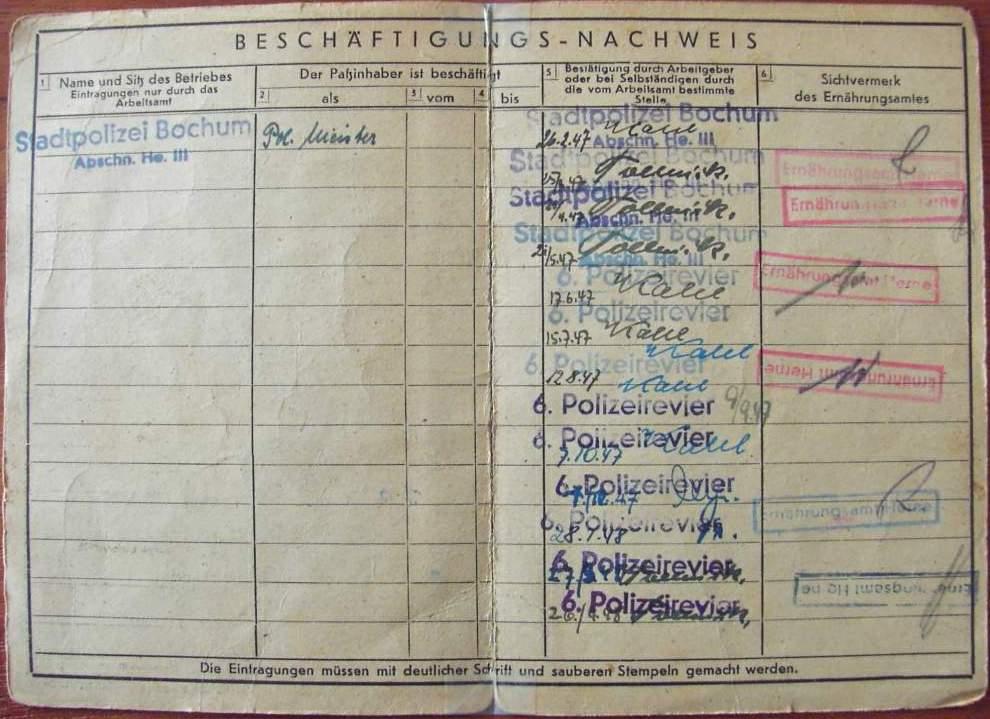 BESCHÄFTIGUNGS-NACHWEIS
1 Name und Sitz des Betriebes
Eintragungen nur durch das
Arbeitsamt
Der Paßinhaber ist beschäftigt
2 als
3 vom
4 bis
5 Bestätigung durch Arbeitgeber
oder bei Selbständigen durch
die vom Arbeitsamt bestimmte
Stelle
6 Sichtvermerk
des Ernährungsamtes
Stadtpolizei Bochum
Abschn. He. III
Pol. Meister
Stadtpolizei Bochum
26.2.47 Abschn. He. III
Stadtpolizei Bochum
Ernährungsamt Herne
Stadtpolizei Bochum
Abschn. He. III
Ernährungsamt Herne
Stadtpolizei Bochum
Abschn. He. III
6. Polizeirevier
Ernährungsamt Herne
17.6.47
6. Polizeirevier
15.7.47
6. Polizeirevier
Ernährungsamt Herne
12.8.47
6. Polizeirevier 9/9.47
6. Polizeirevier
7.10.47
6. Polizeirevier
6. Polizeirevier
Ernährungsamt Herne
28.1.48
6. Polizeirevier
Ernährungsamt Herne
6. Polizeirevier
Die Eintragungen müssen mit deutlicher Schrift und sauberen Stempeln gemacht werden.